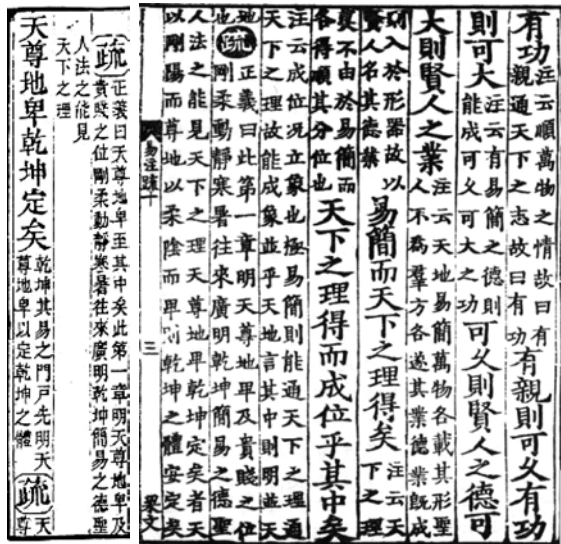 有功注云順萬物之情故曰有
親通天下之志故曰有功有親則可久有功
則可大注云有易簡之德則
能成可久可大之功可久則賢人之德可
大則賢人之業注云天地易簡萬物各載其形聖
人不爲羣方各遂其業德業既成
則入於形器故以
賢人名其德業易簡而天下之理得矣注云天
下之理
莫不由於易簡而
各得順其分位也天下之理得而成位乎其中矣
注云成位况立象也極易簡則能通天下之理通
天下之理故能成象並乎天地言其中則明並天
地也疏正義曰此第一章明天尊地卑及貴賤之位
剛柔動靜寒暑往來廣明乾坤簡易之德聖
人法之能見天下之理天尊地卑乾坤定矣者天
以剛陽而尊地以柔陰而卑則乾坤之體安定矣
易注疏十
三
疏正義曰天尊地卑至其中矣此第一章明天尊地卑及
貴賤之位剛柔動靜寒暑往來廣明乾坤簡易之德聖
人法之能見
天下之理
天尊地卑乾坤定矣乾坤其易之門戶先明天
尊地卑以定乾坤之體疏天
尊